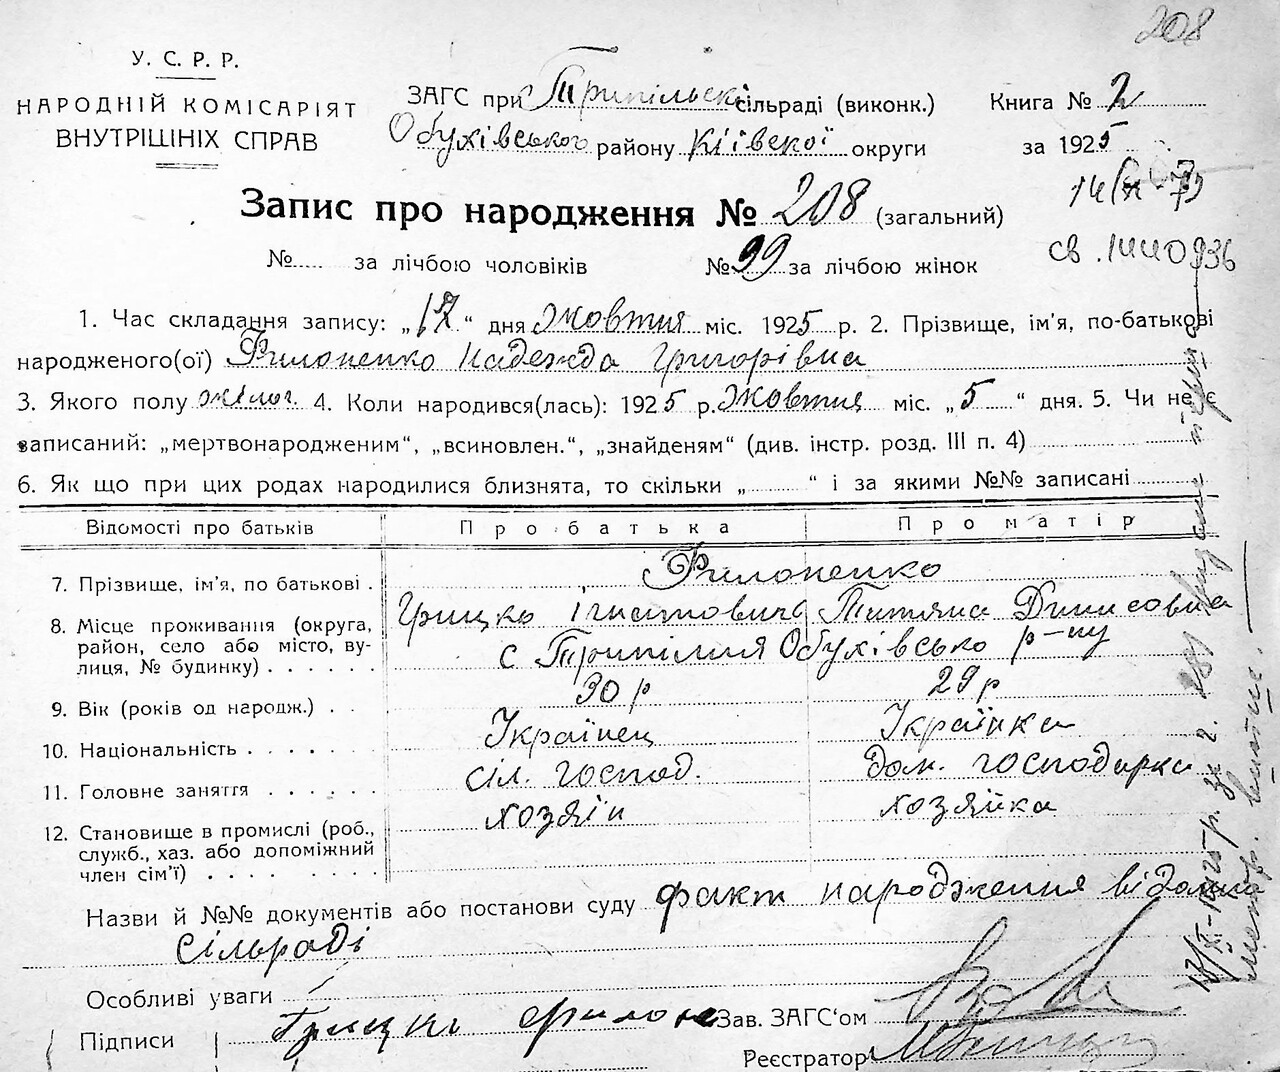 208
У. С. Р. Р.
НАРОДНІЙ КОМІСАРІЯТ
ВНУТРІШНІХ СПРАВ
ЗАГС при Трипільскі сільраді (виконк.)
Обухівського району Київскої округи
Книга № 2
за 1925
Запис про народження № 208 (загальний)
№ ..... за лічбою чоловіків № 99 за лічбою жінок
св. 1440936
1. Час складання запису: „12“ дня жовтня міс. 1925 р. 2. Прізвище, ім'я, по-батькові
народженого(ої) Филоненко Надежда Григорівна
3. Якого полу жіноч. 4. Коли народився(лась): 1925 р. жовтня міс. „5“ дня. 5. Чи не є
записаний: „мертвонародженим“, „всиновлен.“, „знайденям“ (див. інстр. розд. III п. 4)
6. Як що при цих родах народилися близнята, то скільки „.......“ і за якими №№ записані
Відомості про батьків Про батька Про матір
7. Прізвище, ім'я, по батькові . Филоненко
Грицко Ігнатович Титяна Динисовна
8. Місце проживання (округа,
район, село або місто, ву-
лиця, № будинку) . . . . . .
с Трипілля Обухівсько р-ну
9. Вік (років од народж.) . . 30 р 29 р
10. Національність . . . . . . . Українец Українка
11. Головне заняття . . . . . . сіл. господ. дом. господарка
12. Становище в промислі (роб.,
служб., хаз. або допоміжний
член сім'ї) . . . . . . . .
хозяін хозяйка
Назви й №№ документів або постанови суду факт народження відомий
сільраді
Особливі уваги
Підписи Грицко Филоне
Зав. ЗАГС'ом
Реєстратор